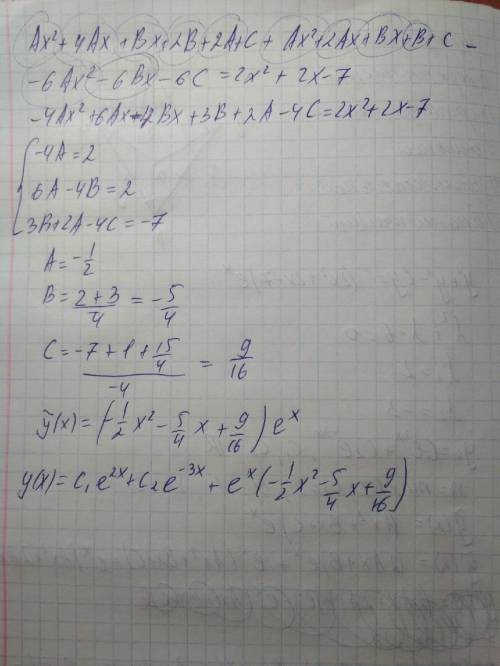 Ax²+4Ax+Bx+2B+2A+C+ Ax²+2Ax+Bx+B+C -
-6Ax²-6Bx-6C=2x²+2x-7
-4Ax²+6Ax-4Bx+3B+2A-4C=2x²+2x-7
-4A=2
6A-4B=2
3B+2A-4C=-7
A=-1/2
B=(2+3)/4=-5/4
C=(-7+1+15/4)/-4=9/16
ỹ(x)=(-1/2x²-5/4x+9/16)eˣ
y(x)=C₁e²ˣ+C₂e⁻³ˣ+eˣ(-1/2x²-5/4x+9/16)